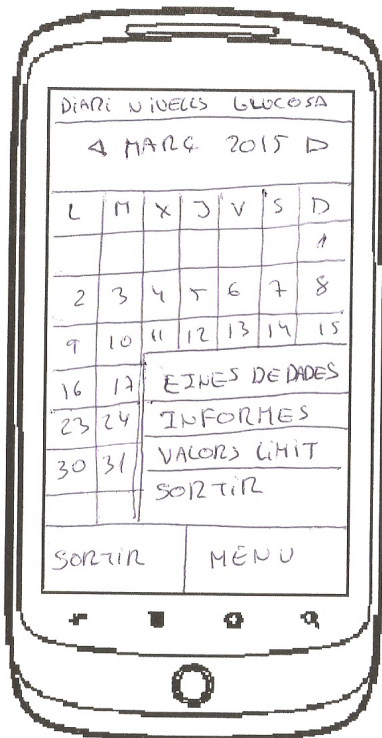 DIARI NIVELLS GLUCOSA
MARÇ 2015
L M X J V S D
1
2 3 4 5 6 7 8
9 10 11 12 13 14 15
16 17 EINES DE DADES
23 24 INFORMES
30 31 VALORS LÍMIT
SORTIR
SORTIR MENU